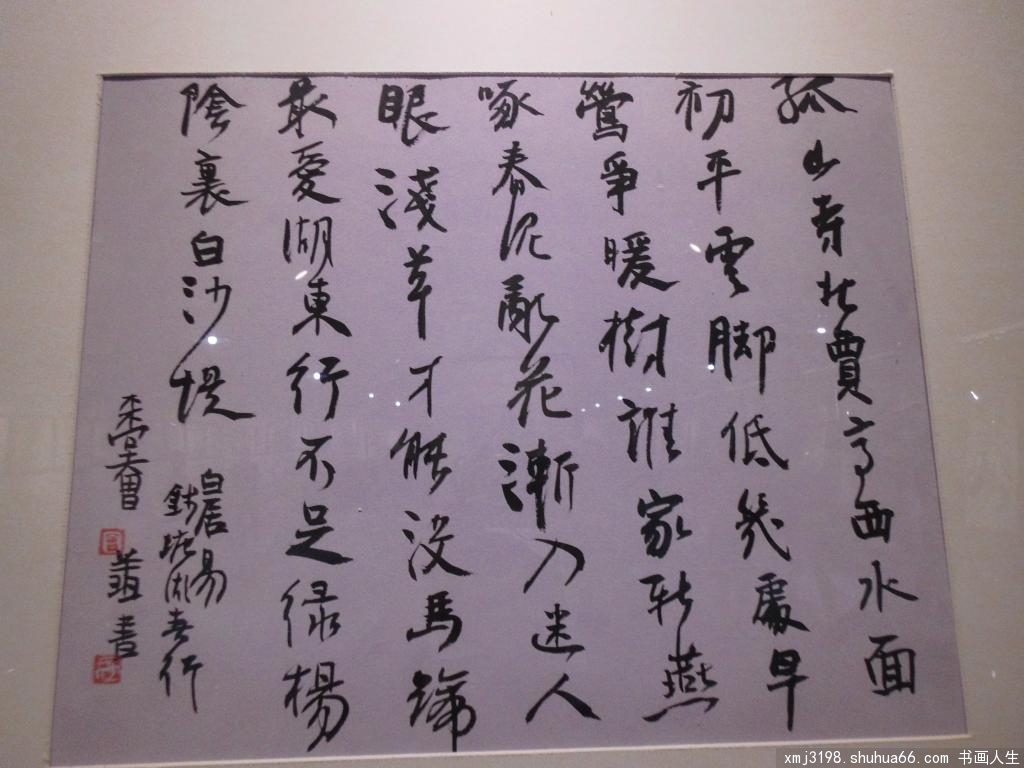 孤山寺北賈亭西水面
初平雲脚低幾處早
鶯爭暖樹誰家新燕
啄春泥亂花漸入迷人
眼淺草才能沒馬蹄
最愛湖東行不足綠楊
陰裏白沙堤
白居易
錢塘湖春行
書
xmj3198.shuhua66.com 书画人生